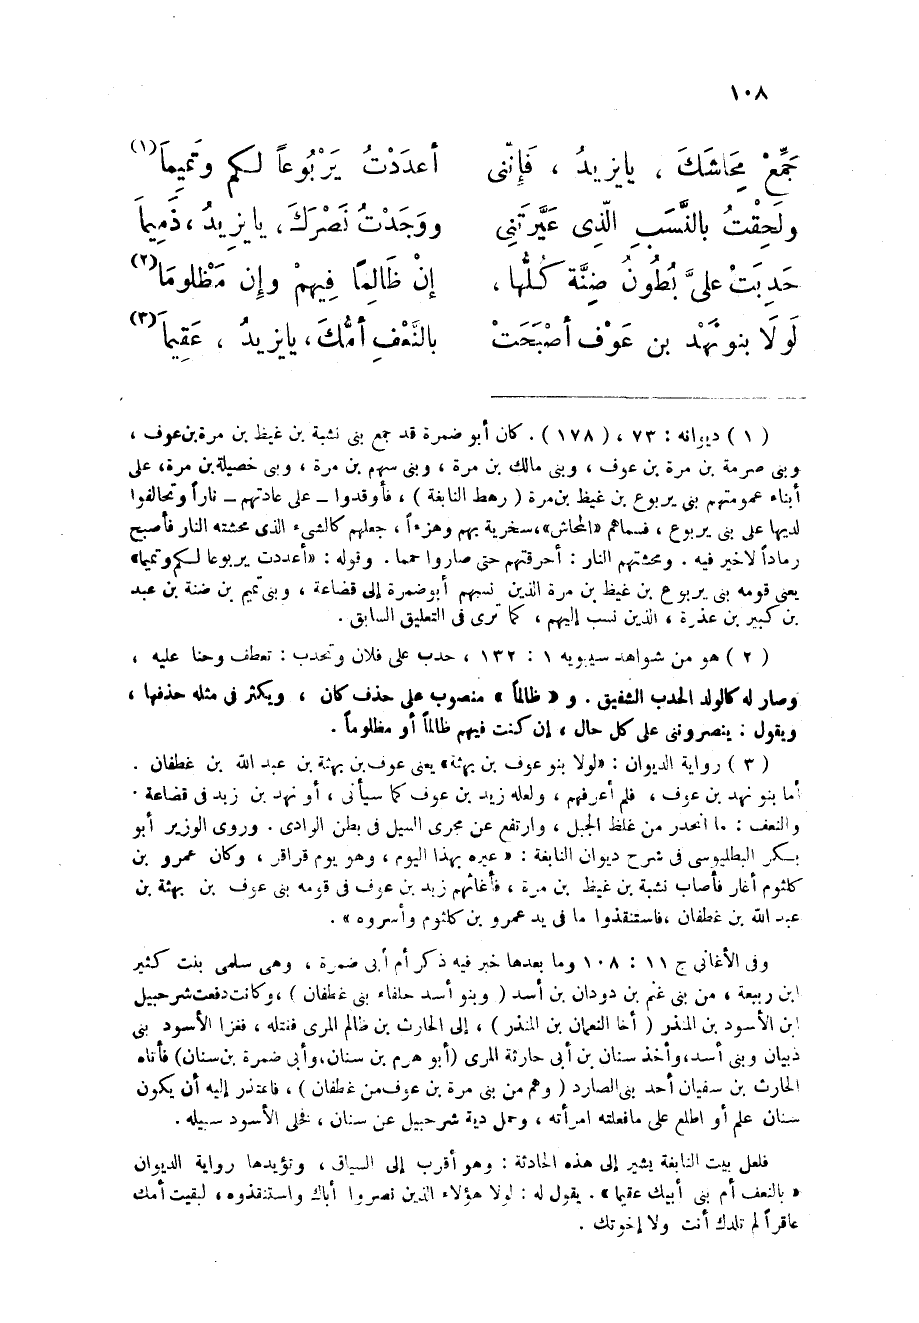 ١٠٨
جَمِّعْ مِحَاشَكَ ، يا يزيدُ ، فَإِنَّنى أعدَدْتُ يَرْبُوعاً لكم وتَمِيماَ (١)
ولَحِقْتُ بالنَّسَبِ الَّذِى عَيَّرتَنِى ووَجَدْتُ نَصْرَكَ ، يا يزيدُ ، ذَمِيماَ
حَدِبَتْ علىَّ بُطُونُ ضِنَّة كُلُّها ، إنْ ظَالِمًا فِيهِمْ وإن مَظْلُومَا (٢)
لَولَا بنو نَهْد بن عَوْف أصْبَحَتْ بالنَّعْفِ أمُّكَ ، يا يزيدُ ، عَقِيماَ (٣)
( ١ ) ديوانه : ٧٣ ، ( ١٧٨ ) . كان أبو ضمرة قد جمع بنى نشبة بن غيظ بن مرة بن عوف ،
وبنى صرمة بن مرة بن عوف ، وبنى مالك بن مرة ، وبنى سهم بن مرة ، وبنى خصيلة بن مرة ، على
أبناء عمومتهم بنى يربوع بن غيظ بن مرة ( رهط النابغة ) ، فأوقدوا – على عادتهم – ناراً وتحالفوا
لديها على بنى يربوع ، فسماهم «المحاش» ، سخرية بهم وهزءاً ، جعلهم كالشىء الذى محشته النار فأصبح
رماداً لا خير فيه . ومحشتهم النار : أحرقتهم حتى صاروا حمما . وقوله : «أعددت يربوعا لكم وتميما»
يعنى قومه بنى يربوع بن غيظ بن مرة الذين نسبهم أبو ضمرة إلى قضاعة ، وبنى تميم بن ضنة بن عبد
بن كبير بن عذرة ، الذين نسب إليهم ، كما ترى فى التعليق السابق .
( ٢ ) هو من شواهد سيبويه ١ : ١٣٢ ، حدب على فلان وتحدب : تعطف وحنا عليه ،
وصار له كالولد الحدب الشفيق . و « ظالماً » منصوب على حذف كان ، ويكثر فى مثله حذفها ،
ويقول : ينصرونى على كل حال ، إن كنت فيهم ظالماً أو مظلوماً .
( ٣ ) رواية الديوان : «لولا بنو عوف بن بهثة» يعنى عوف بن بهثة بن عبد الله بن غطفان .
أما بنو نهد بن عوف ، فلم أعرفهم ، ولعله زيد بن عوف كما سيأتى ، أو نهد بن زيد فى قضاعة .
والنعف : ما انحدر من غلظ الجبل ، وارتفع عن مجرى السيل فى بطن الوادى . وروى الوزير أبو
بكر البطليوسى فى شرح ديوان النابغة : « عيره بهذا اليوم ، وهو يوم قراقر ، وكان عمرو بن
كلثوم أغار فأصاب نشبة بن غيظ بن مرة ، فأغاثهم زيد بن عوف فى قومه بنى عوف بن بهثة بن
عبد الله بن غطفان ، فاستنقذوا ما فى يد عمرو بن كلثوم وأسروه » .
وفى الأغانى ج ١١ : ١٠٨ وما بعدها خبر فيه ذكر أم أبى ضمرة ، وهى سلمى بنت كثير
ابن ربيعة ، من بنى غنم بن دودان بن أسد ( وبنو أسد حلفاء بنى غطفان ) ، وكانت دفعت شرحبيل
ابن الأسود بن المنذر ( أخا النعمان بن المنذر ) ، إلى الحارث بن ظالم المرى فقتله ، فغزا الأسود بنى
ذبيان وبنى أسد ، وأخذ سنان بن أبى حارثة المرى (أبو هرم بن سنان ، وأبى ضمرة بن سنان) فأتاه
الحارث بن سفيان أحد بنى الصارد ( وهم من بنى مرة بن عوف من غطفان ) ، فاعتذر إليه أن يكون
سنان علم أو اطلع على ما فعلته امرأته ، وحمل دية شرحبيل عن سنان ، فخلى الأسود سبيله .
فلعل بيت النابغة يشير إلى هذه الحادثة : وهو أقرب إلى السياق ، وتؤيدها رواية الديوان
« بالنعف أم بنى أبيك عقيما » . يقول له : لولا هؤلاء الذين نصروا أباك واستنقذوه ، لبقيت أمك
عاقراً لم تلدك أنت ولا إخوتك .